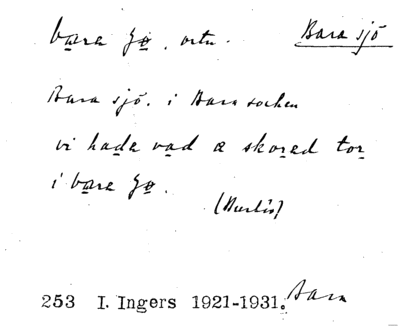 bara ʃø. ortn. Bara sjö
Bara sjö. i Bara socken
vi hada vad a skored tor
i bara ʃø.
253 I. Ingers 1921-1931. Bara